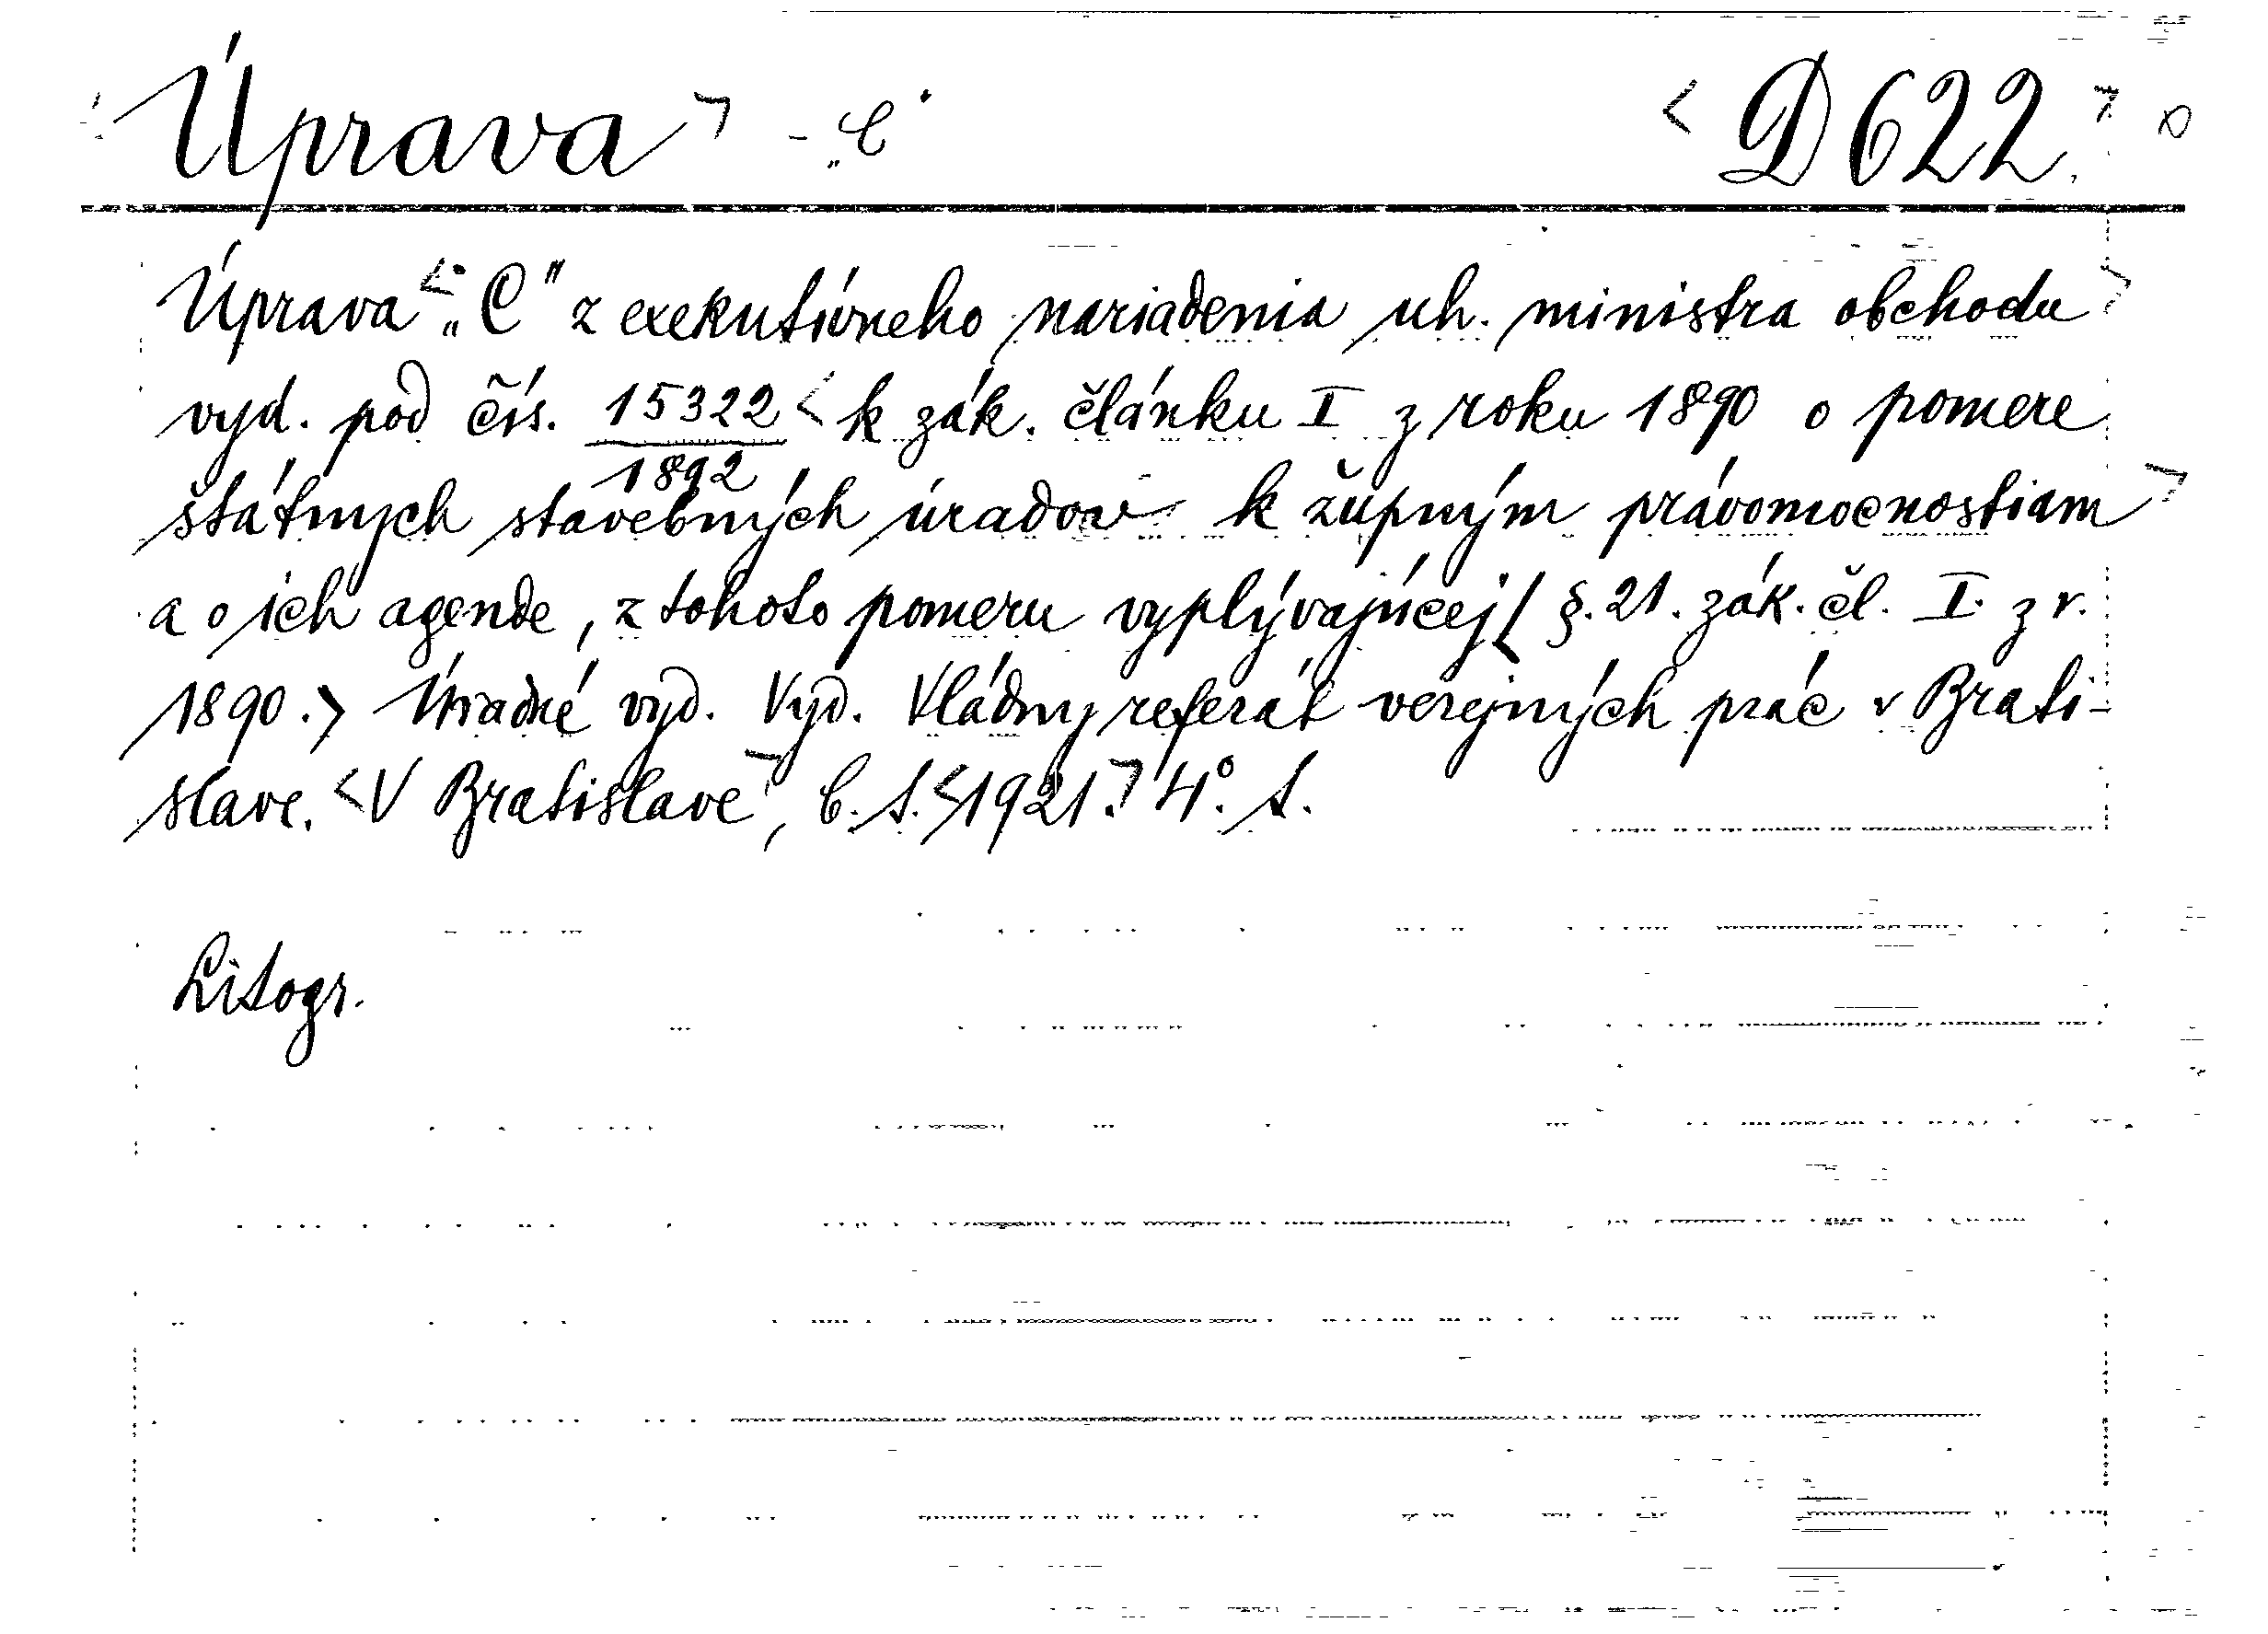 Úprava - „C“ D 622.
Úprava „C“ z exekutívneho nariadenia uh. ministra obchodu
vyd. pod čís. 15322/1892 k zák. článku I z roku 1890 o pomere
štátnych stavebných úradov k župným právomocnostiam
a o ich agende, z tohoto pomeru vyplývajúcej (§. 21. zák. čl. I. z r.
1890.) Úradné vyd. Vyd. Vládny referát verejných prác v Brati-
slave. V Bratislave, b. t. 1921. 4°. s.
Litogr.